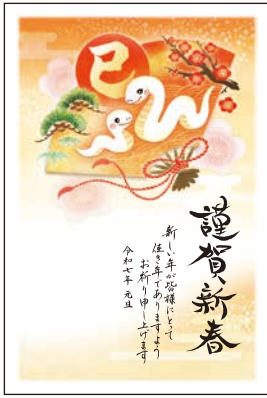 巳
謹賀新春
新しい年が皆様にとって
佳き年でありますよう
お祈り申し上げます
令和七年 元旦